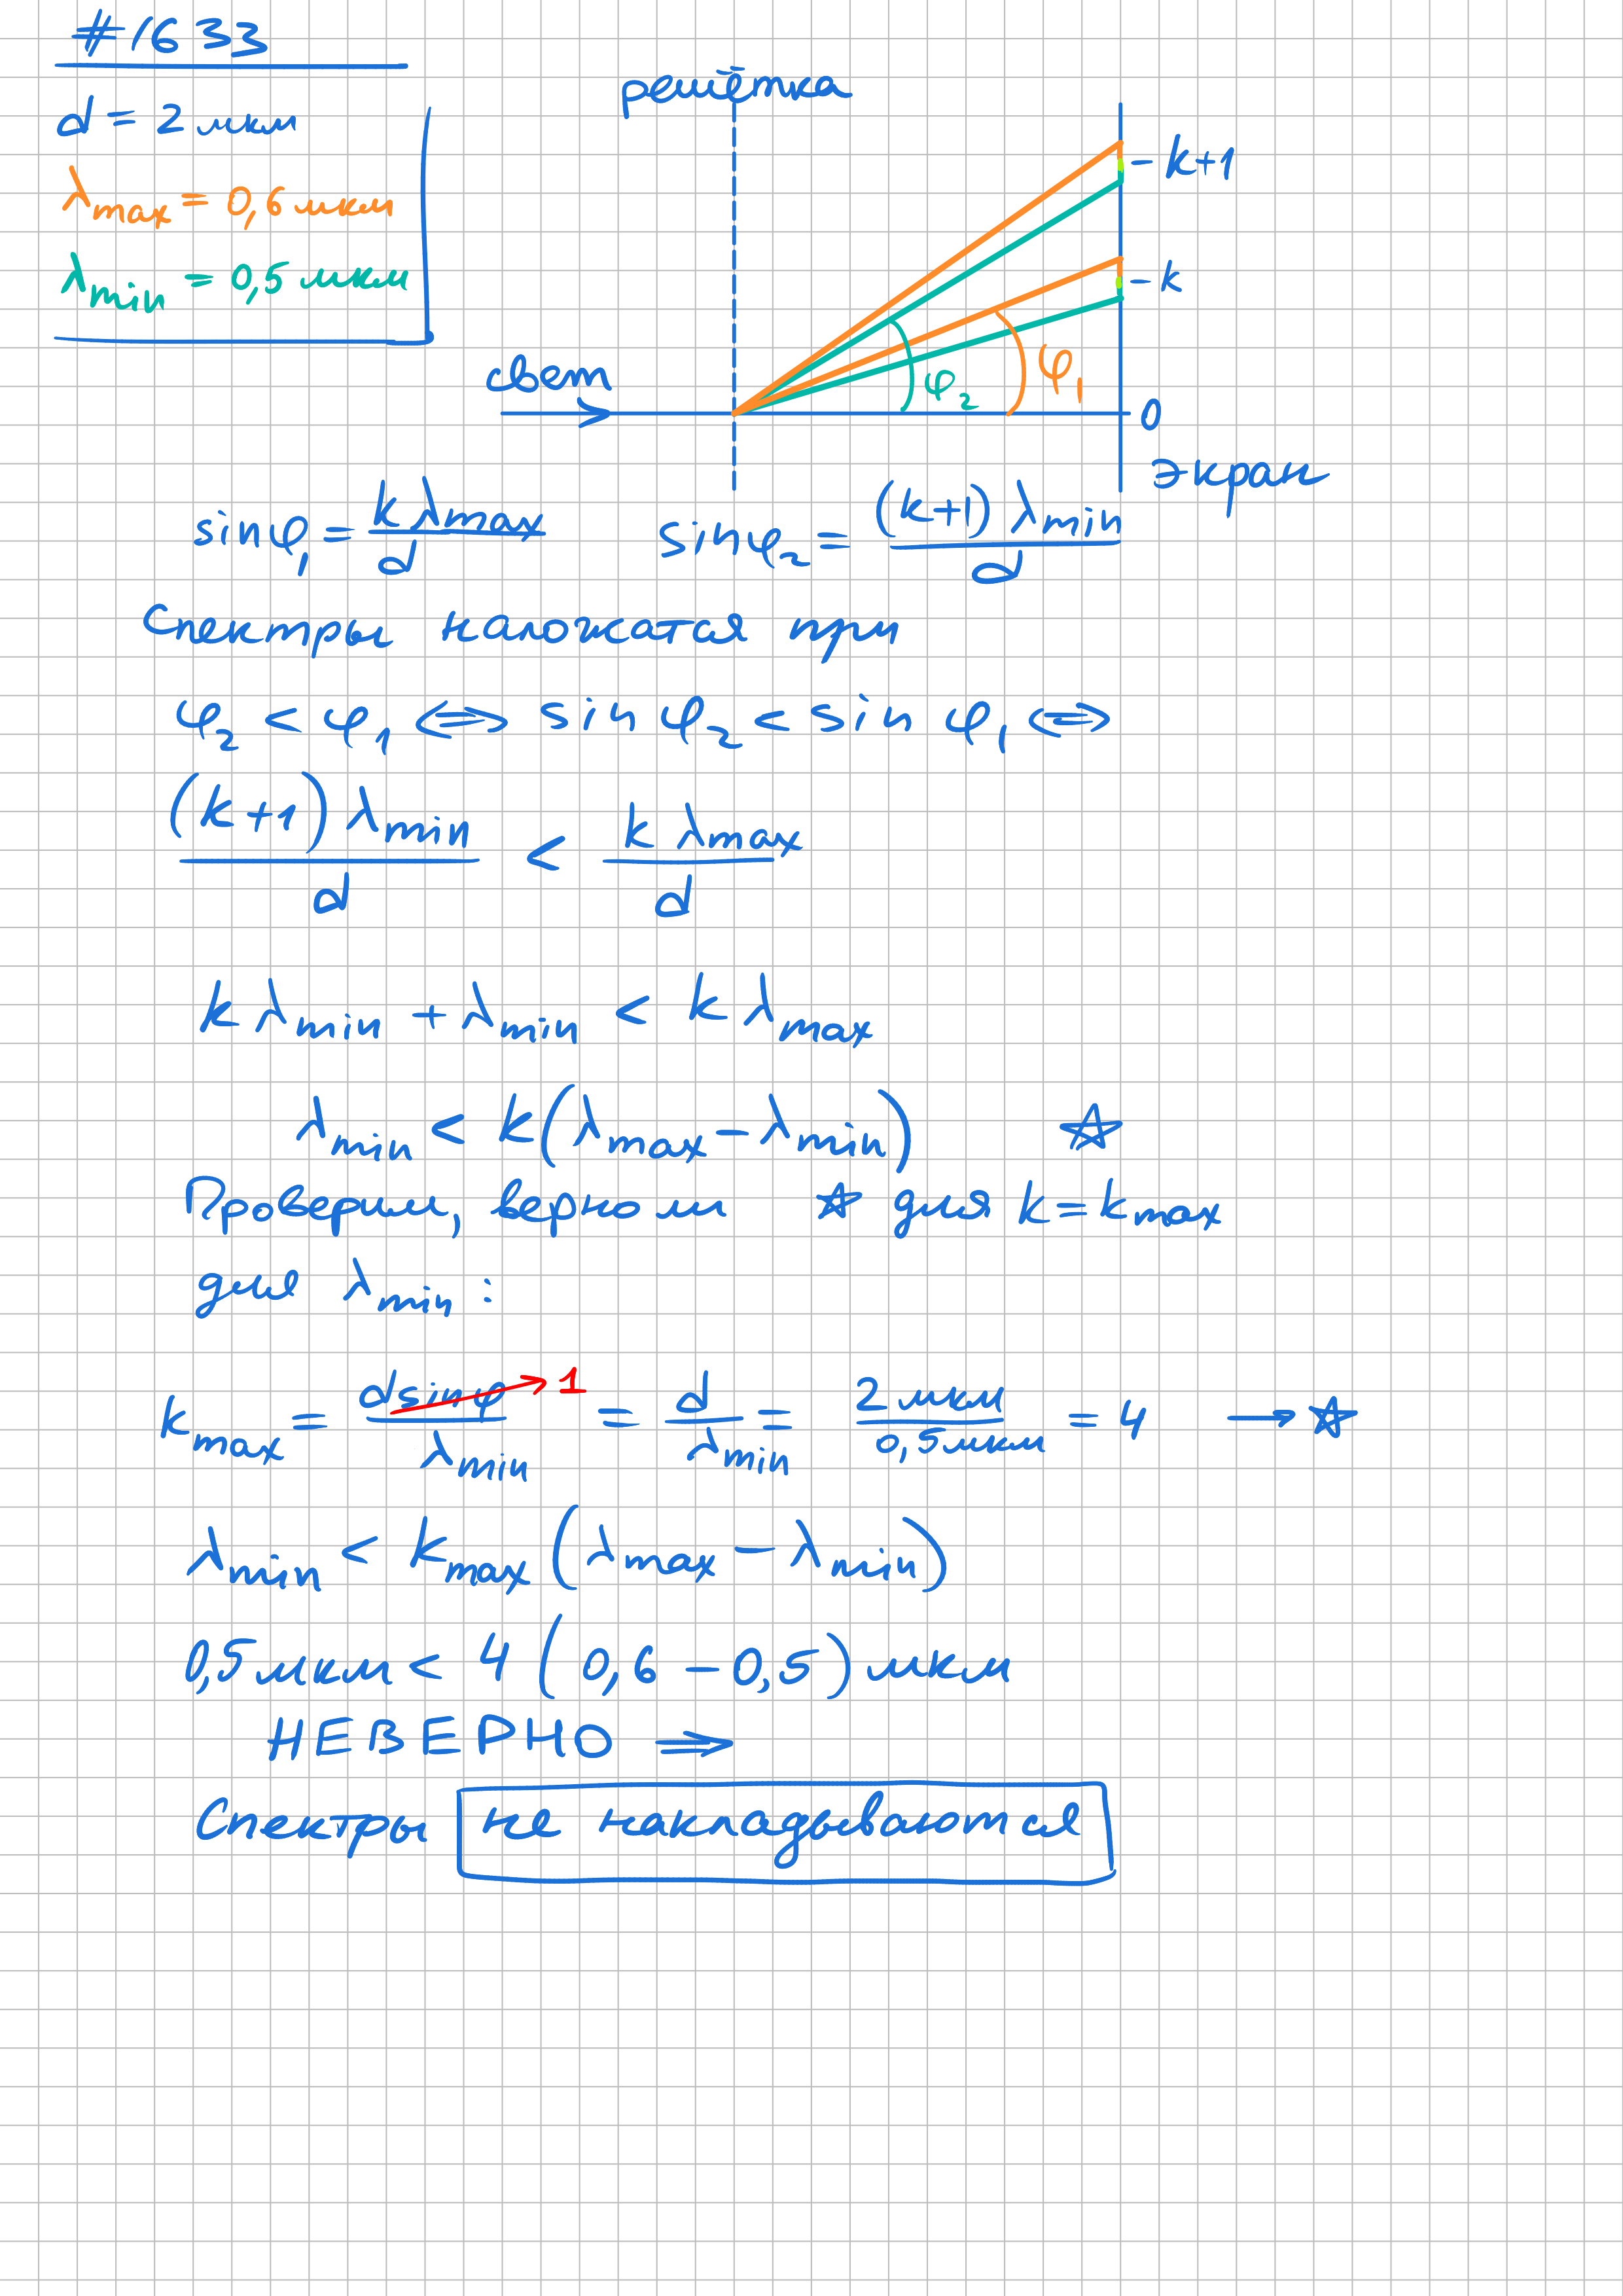 #1633
d = 2 мкм
λmax = 0,6 мкм
λmin = 0,5 мкм
решётка
k+1
k
φ₂
φ₁
свет
0
экран
sinφ₁ = kλmax/d sinφ₂ = (k+1)λmin/d
Спектры наложатся при
φ₂ < φ₁ ⇔ sin φ₂ < sin φ₁ ⇔
(k+1)λmin/d < kλmax/d
kλmin + λmin < kλmax
λmin < k(λmax − λmin) ☆
Проверим, верно ли ☆ для k = kmax
для λmin:
kmax = dsinφ/λmin → 1 = d/λmin = 2 мкм/0,5 мкм = 4 → ☆
λmin < kmax(λmax − λmin)
0,5 мкм < 4(0,6 − 0,5) мкм
НЕВЕРНО ⇒
Спектры не накладываются